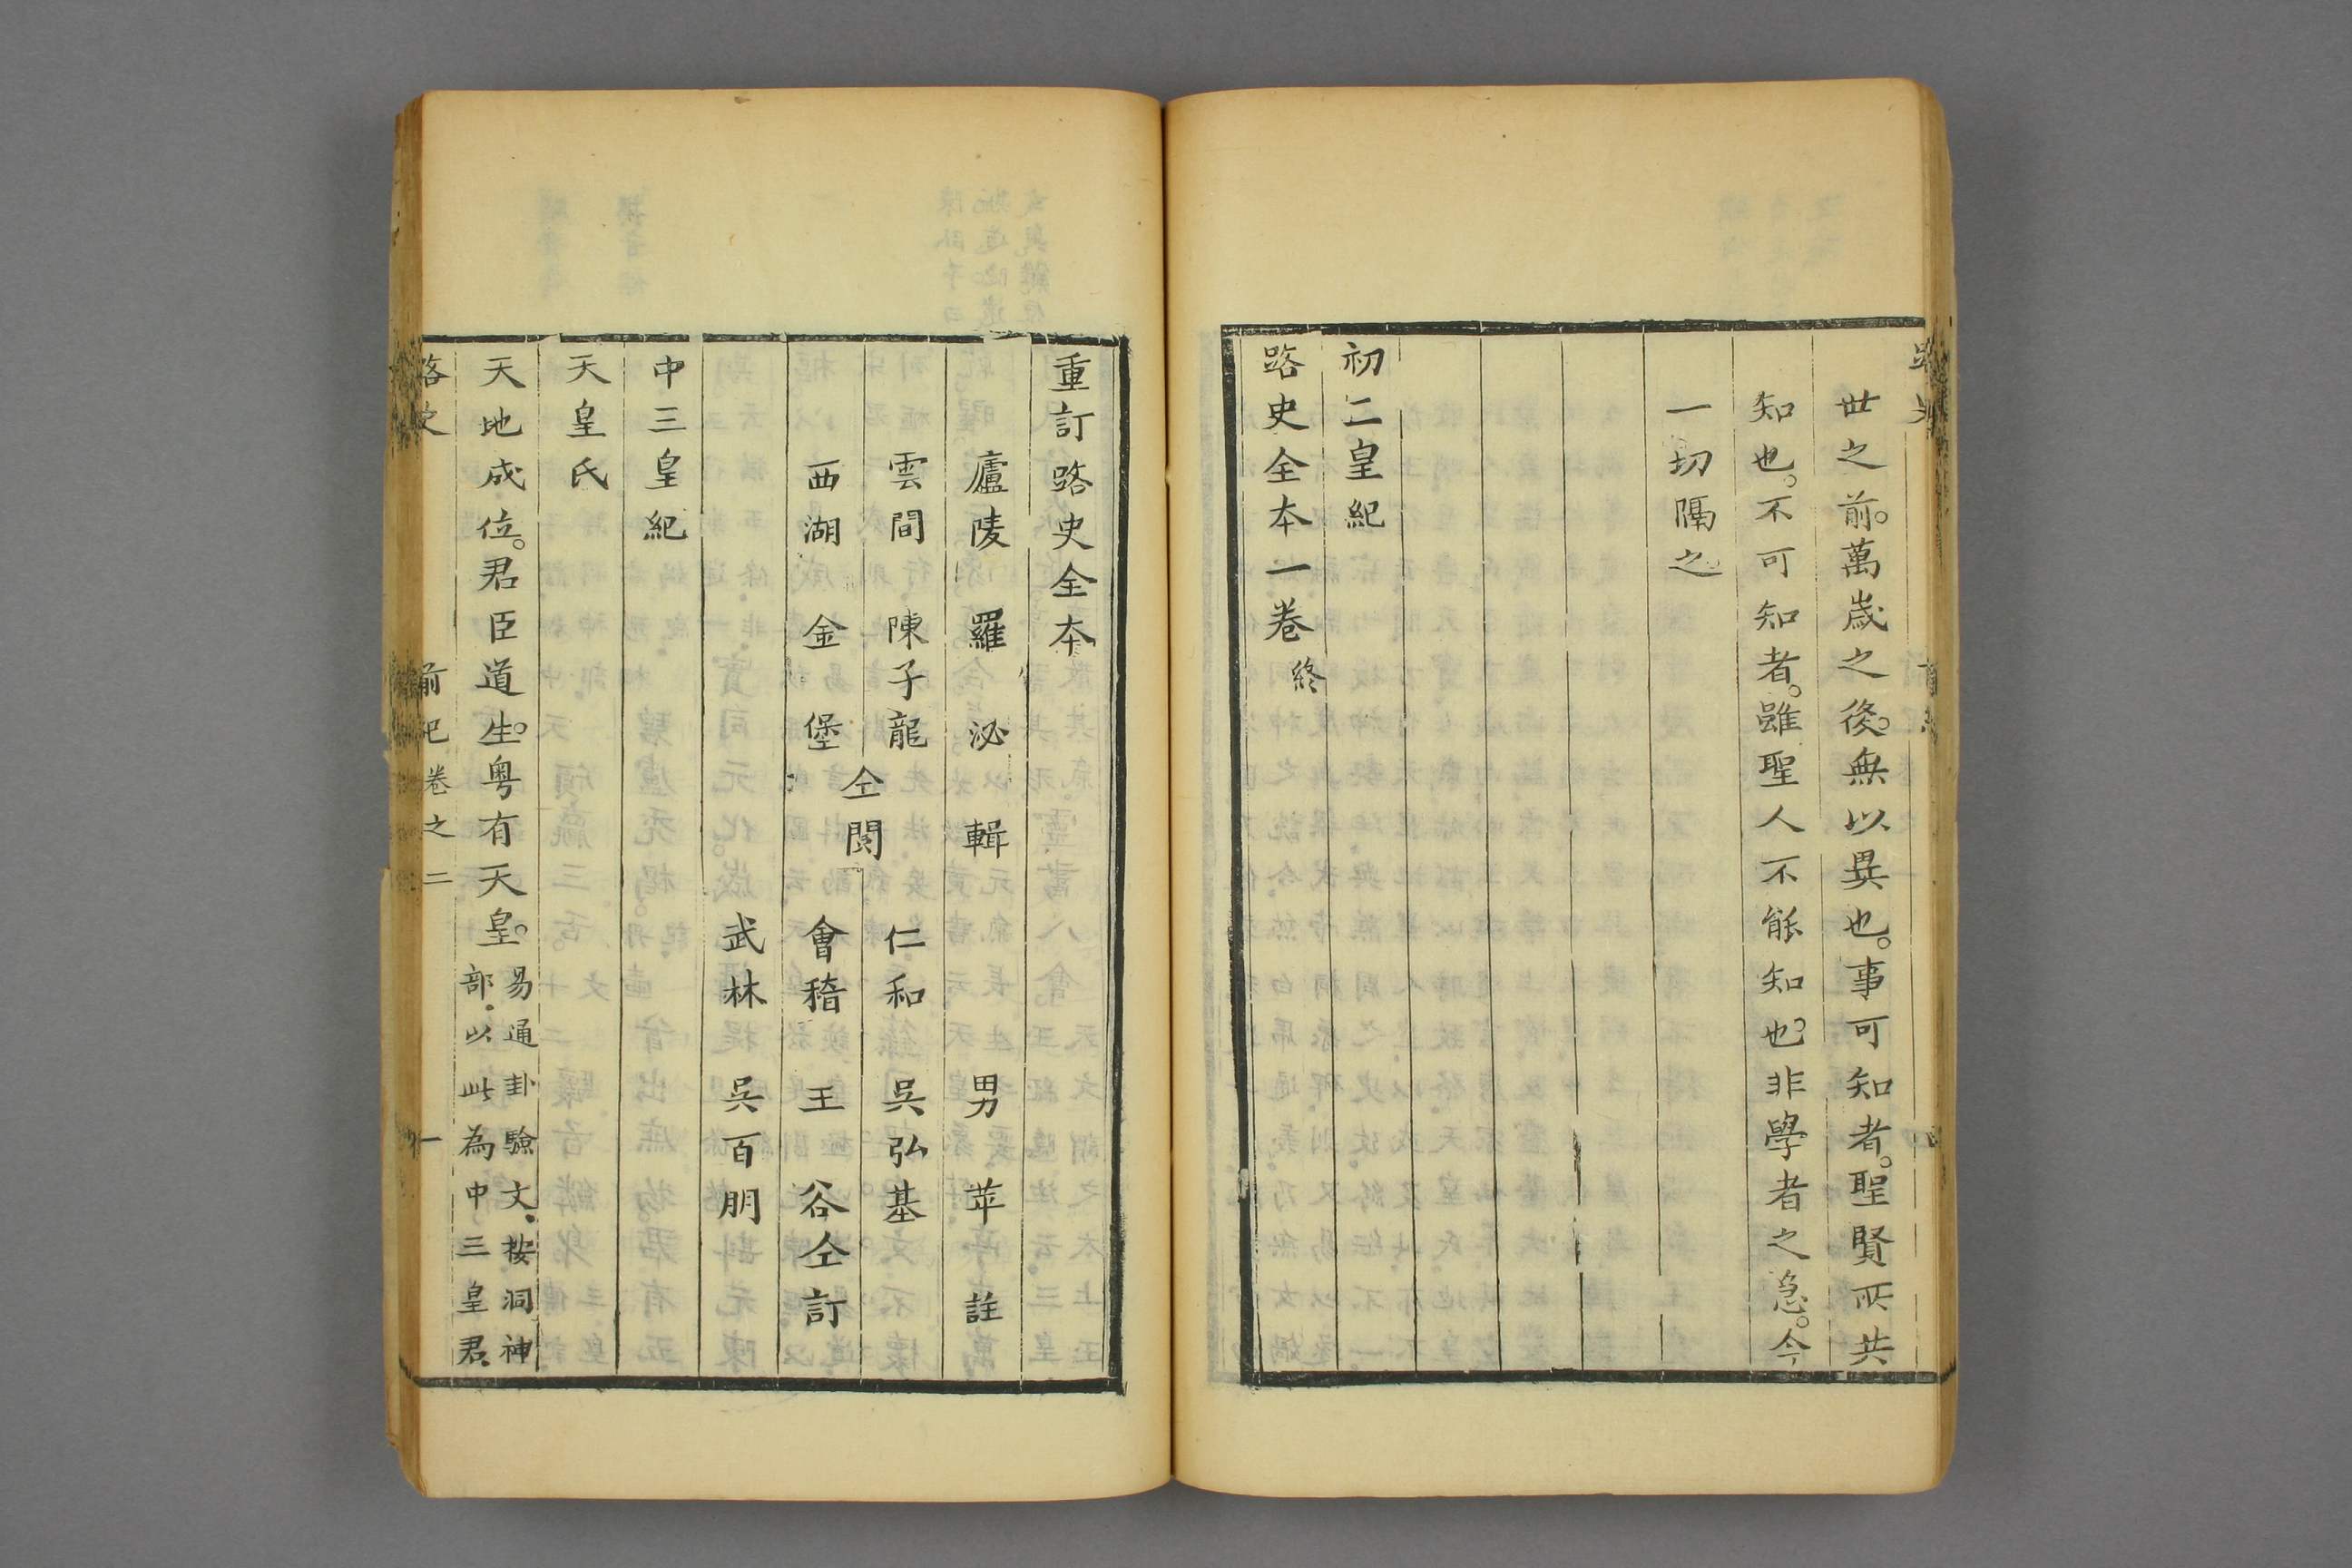 世之前。萬歲之後。無以異也。事可知者。聖賢所共
知也。不可知者。雖聖人不能知也。非學者之急。今
一切隔之
初二皇紀
路史全本一卷終
重訂路史全本
廬陵羅泌輯男苹註
雲間陳子龍
西湖金堡
仝閱
仁和吳弘基
會稽王谷仝訂
武林吳百朋
中三皇紀
天皇氏
天地成位。君臣道生。粵有天皇。
易通卦驗文.按洞神
部.以此為中三皇君.
路史 前紀卷之二 一